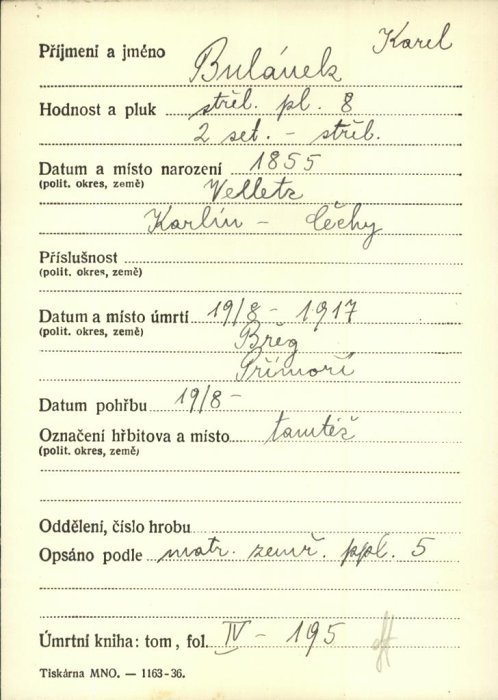 Karel
Příjmení a jméno Bulánek
Hodnost a pluk střel. pl. 8
2 set. - střel.
Datum a místo narození 1855
(polit. okres, země) Velletz
Karlín - Čechy
Příslušnost
(polit. okres, země)
Datum a místo úmrtí 19/8 - 1917
(polit. okres, země) Břeg
Přímoří
Datum pohřbu 19/8 -
Označení hřbitova a místo tamtéž
(polit. okres, země)
Oddělení, číslo hrobu
Opsáno podle matr. zemř. ppl. 5
Úmrtní kniha: tom, fol. IV - 195
Tiskárna MNO. — 1163-36.